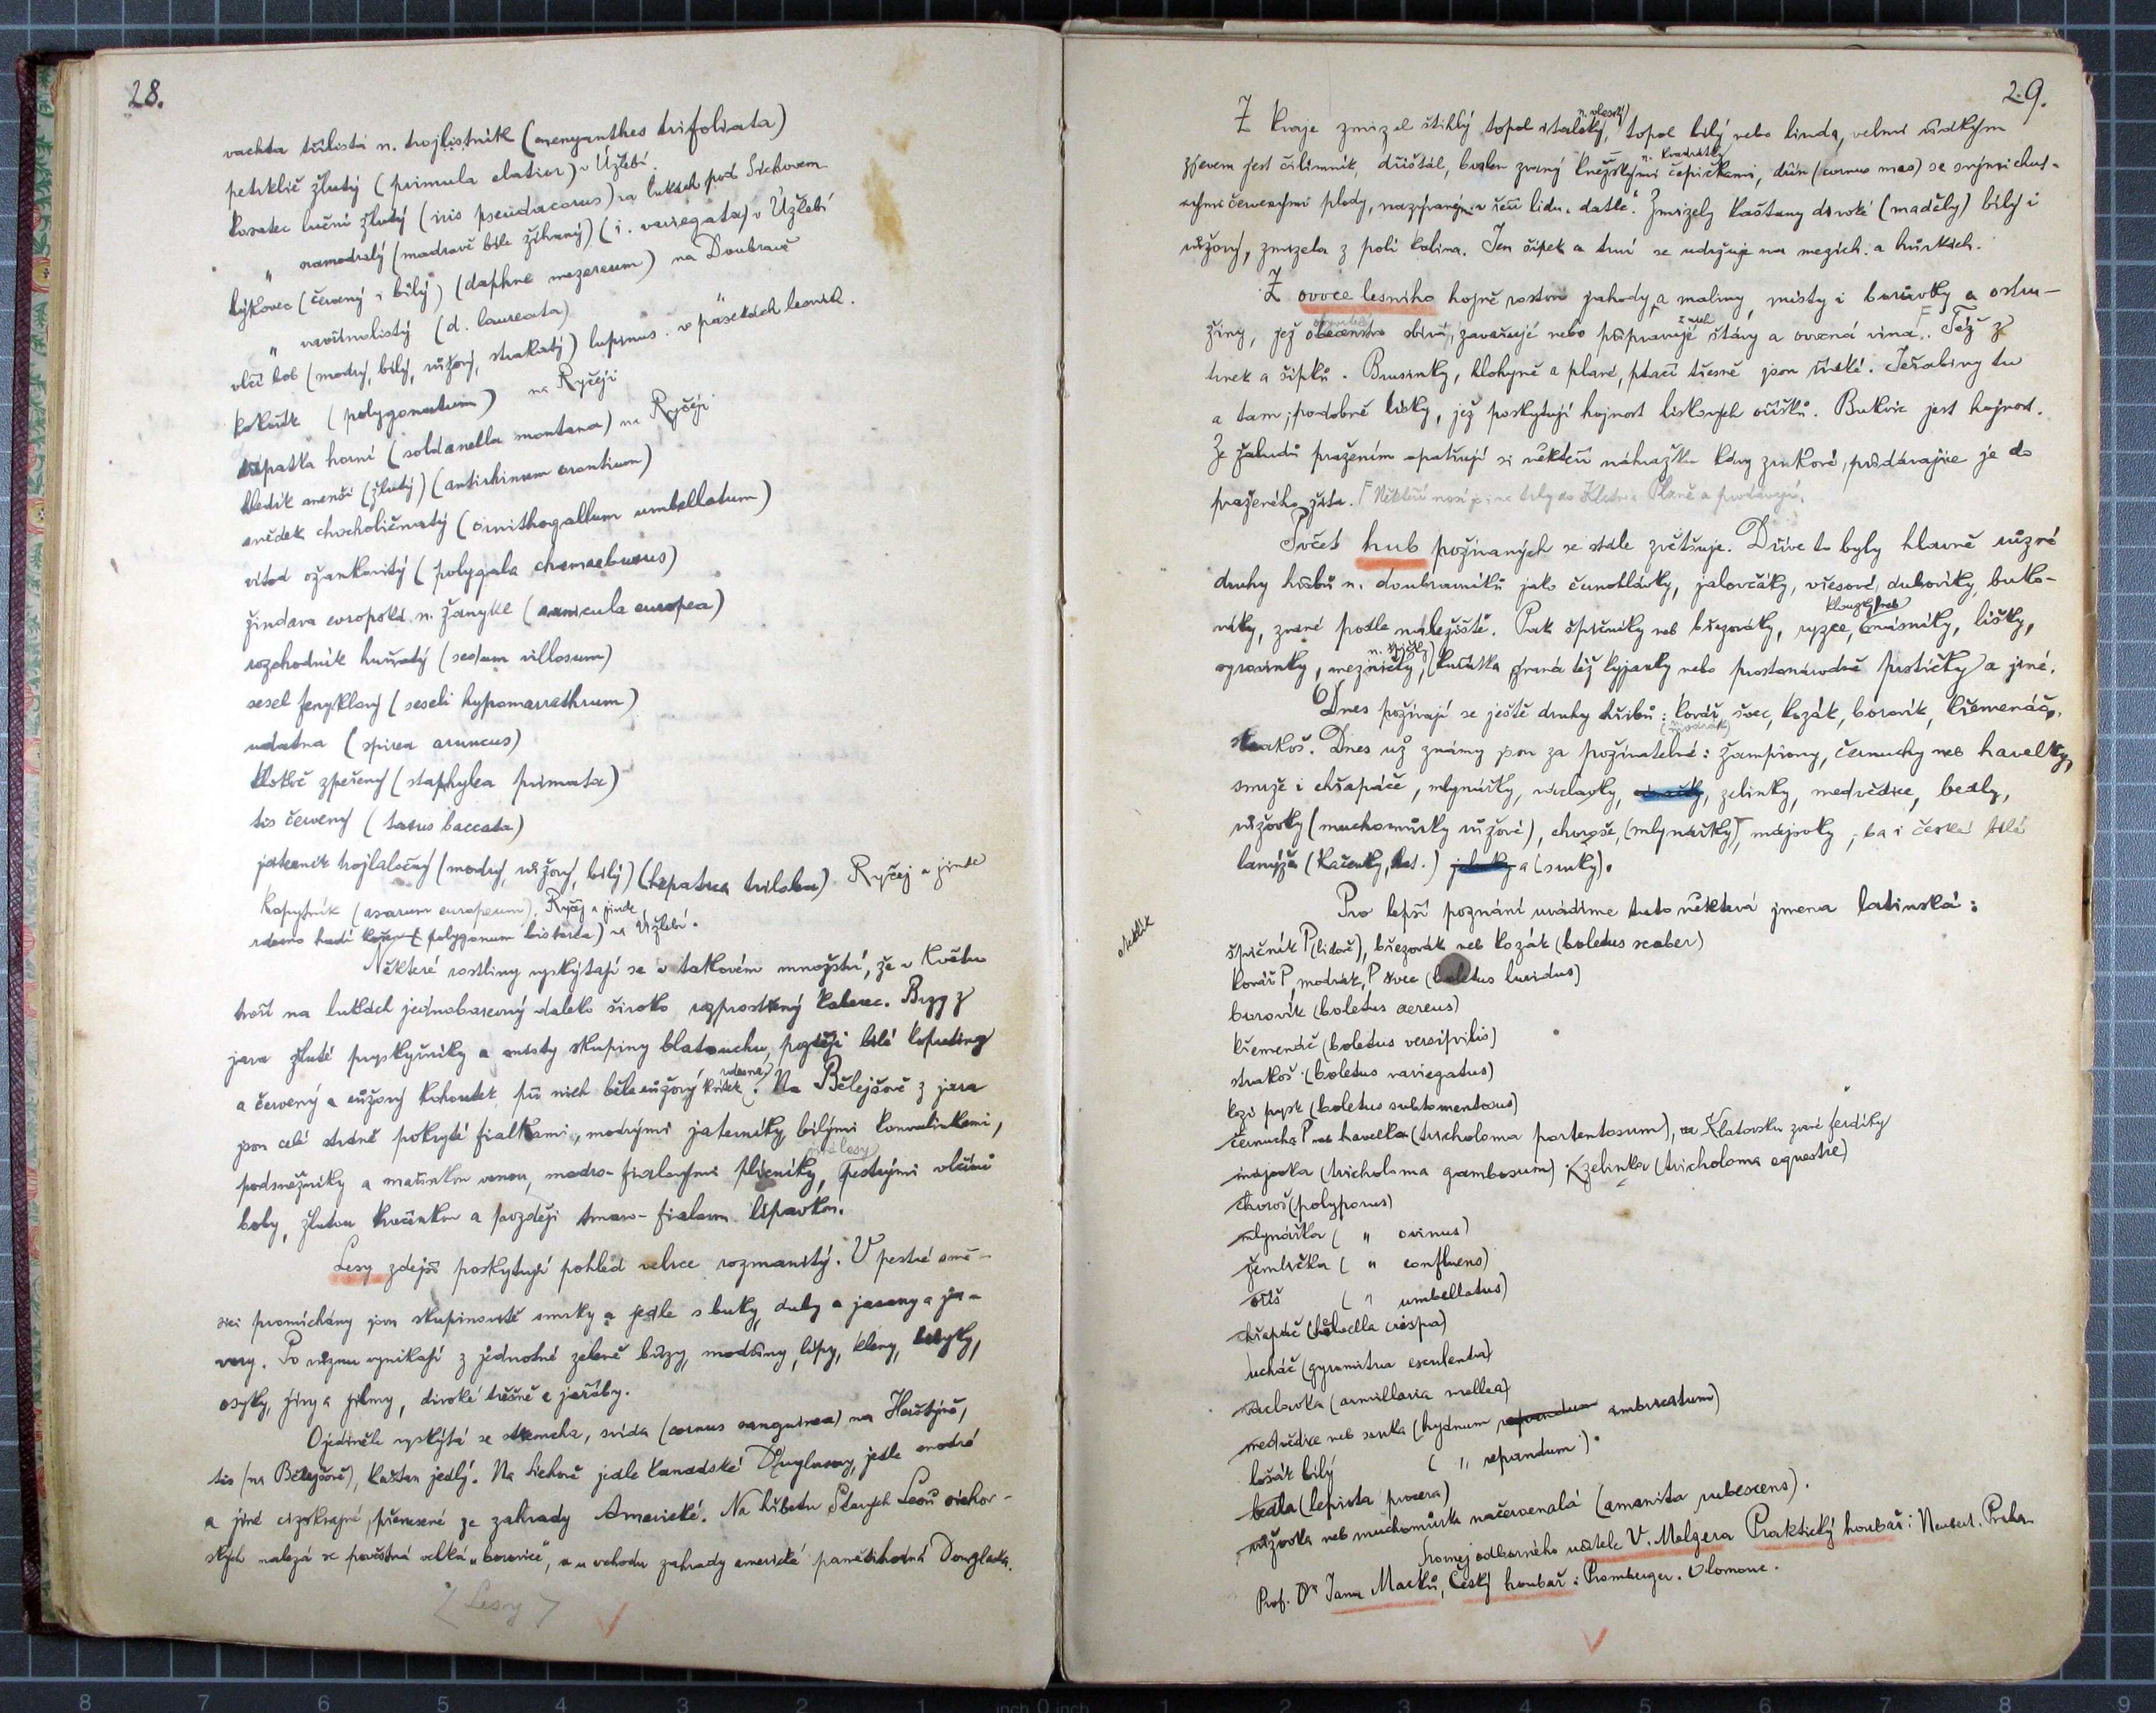 28.
vachta třílistá n. trojlistník (menyanthes trifoliata)
petrklíč žlutý (primula elatior) v Úžlebí
kosatec luční žlutý (iris pseudacorus) na lukách pod Sichovem
" namodralý (modravě bíle žíhaný) (i. variegata) v Úžlebí
lýkovec (červený i bílý) (daphne mezereum) na Doubravě
" vavřínolistý (d. laureata)
vlčí bob (modrý, bílý, růžový, strakatý) lupinus. v pasekách lesních.
kokořík (polygonatum) na Ryčeji
dřípatka horní (soldanella montana) na Ryčeji
hledík menší (žlutý) (antirhinum orontium)
snědek chocholičnatý (ornithogallum umbellatum)
vítod ožankovitý (polygala chamaebuxus)
žindava evropská n. žanykl (sanicula europea)
rozchodník huňatý (sedum villosum)
sesel fenyklový (seseli hypomarrathrum)
udatna (spirea aruncus)
klokoč zpeřený (staphylea pinnata)
tis červený (taxus baccata)
jaterník trojlaločný (modrý, růžový, bílý) (hepatica triloba) Ryčej a jinde
kopytník (asarum europeum), Ryčej a jinde
rdesno hadí kořen (polygonum bistorta) v Úžlebí.
Některé rostliny vyskýtají se v takovém množství, že v květu
tvoří na lukách jednobarevný daleko široko rozprostřený koberec. Brzy z
jara žluté pryskyřníky a místy skupiny blatouchu, později bílé kopretiny
a červený a růžový kohoutek, při nich běle růžový kvítek rdesna. Na Bělejšově z jara
jsou celé stráně pokryté fialkami, modrými jaterníky, bílými konvalinkami,
podsněžníky a mařinkou vonnou, modro-fialovými plicníky, jiné lesy pestrými vlčími
boby, žlutou kručinkou a později tmavo-fialovou lipavkou.
Lesy zdejší poskytují pohled velice rozmanitý. V pestré smě-
sici promíchány jsou skupinovitě smrky a jedle s buky, duby a jasany a ja-
vory. Po různu vynikají z jednotné zeleně břízy, modříny, lípy, kleny, habry,
osyky, jívy a jilmy, divoké třešně a jeřáby.
Ojediněle vyskýtá se střemcha, svída (cornus sanguinea) na Hoštýně,
tis (na Bělejšově), kaštan jedlý. Na Sichově jedle kanadské Duglasovy, jedle modré
a jiné cizokrajné, přenesené ze zahrady Americké. Na hřbetu Starých Lesů sichov-
ských nalezá se pověstná velká „borovice", a u vchodu zahrady americké pamětihodná Douglaska.
(Lesy)
29.
Z kraje zmizel štíhlý topol italský, n. vlaský topol bílý nebo linda, velmi řídkým
zjevem jest čilimník, dřištál, brslen zvaný kněžskými čepičkami, n. kvadrátky dřín (cornus mas) se svými chut-
nými červenými plody, nazývanými v řeči lidu „datle". Zmizely kaštany divoké (maděly) bílý i
růžový, zmizela z polí kalina. Jen šípek a trní se udržuje na mezích a hůrkách.
Z ovoce lesního hojně rostou jahody a maliny, místy i borůvky a ostru-
žiny, jež obecenstvo sbírá, zavařuje nebo připravuje z nich šťávy a ovocná vína. Též z
trnek a šípků. Brusinky, klohyně a plané, ptačí třešně jsou řídké. Jeřabiny tu
a tam, podobně lísky, jež poskytují hojnost lískových oříšků. Bukvic jest hojnost.
Ze žaludů pražením opatřují si někteří náhražku kávy zrnkové, přidávajíce je do
praženého žita. Někteří nosí je na trhy do Klatov a Plzně a prodávají.
Počet hub požívaných se stále zvětšuje. Dříve to byly hlavně různé
druhy hřibů n. doubravníků jako černohlávky, jalovčáky, vřesové, dubováky, buko-
váky, zvané podle naleziště. Pak špičníky neb březováky, ryzce, klouzky neb másníky, lišky,
syrovinky, mezničky, n. špičky kuřátka zvaná též kyjanky nebo prostonárodně prstíčky a jiné.
Dnes požívají se ještě druhy hřibů: kovář, (modrák) švec, kozák, borovík, křemenáč,
strakoš. Dnes už známy jsou za poživatelné: žampiony, černuchy neb havelky,
smrže i chřapáče, mlynářky, václavky, zelinky, medvědice, bedly,
růžovky (muchomůrky růžové), choroše, (mlynářky), májovky, ba i české bílé
lanýže (kačenky, ) a (srnky).
Pro lepší poznání uvádíme tuto některá jmena latinská:
špičník (lidově), březovák neb kozák (boletus scaber)
kovář, modrák, švec (boletus luridus)
borovík (boletus aereus)
křemenáč (boletus versipilis)
strakoš (boletus variegatus)
kozí pysk (boletus subtomentosus)
černucha neb havelka (tricholoma portentosum), na Klatovsku zvané ferdíky
májovka (tricholoma gambosum) zelinka (tricholoma equestre)
choroš (polyporus)
mlynářka ( " ovinus)
žemlička ( " confluens)
oříš ( " umbellatus)
chřapáč (helvella crispa)
ucháč (gyromitra esculenta)
václavka (armillaria mellea)
medvědice neb srnka (hydnum repandum imbricatum)
lošák bílý ( " repandum).
bedla (lepiota procera)
růžovka neb muchomůrka načervenalá (amanita rubescens).
Srovnej odborného učitele V. Melzera Praktický houbař: Neubert. Praha
Prof. Dr Jana Macků, Český houbař: Promberger. Olomouc.